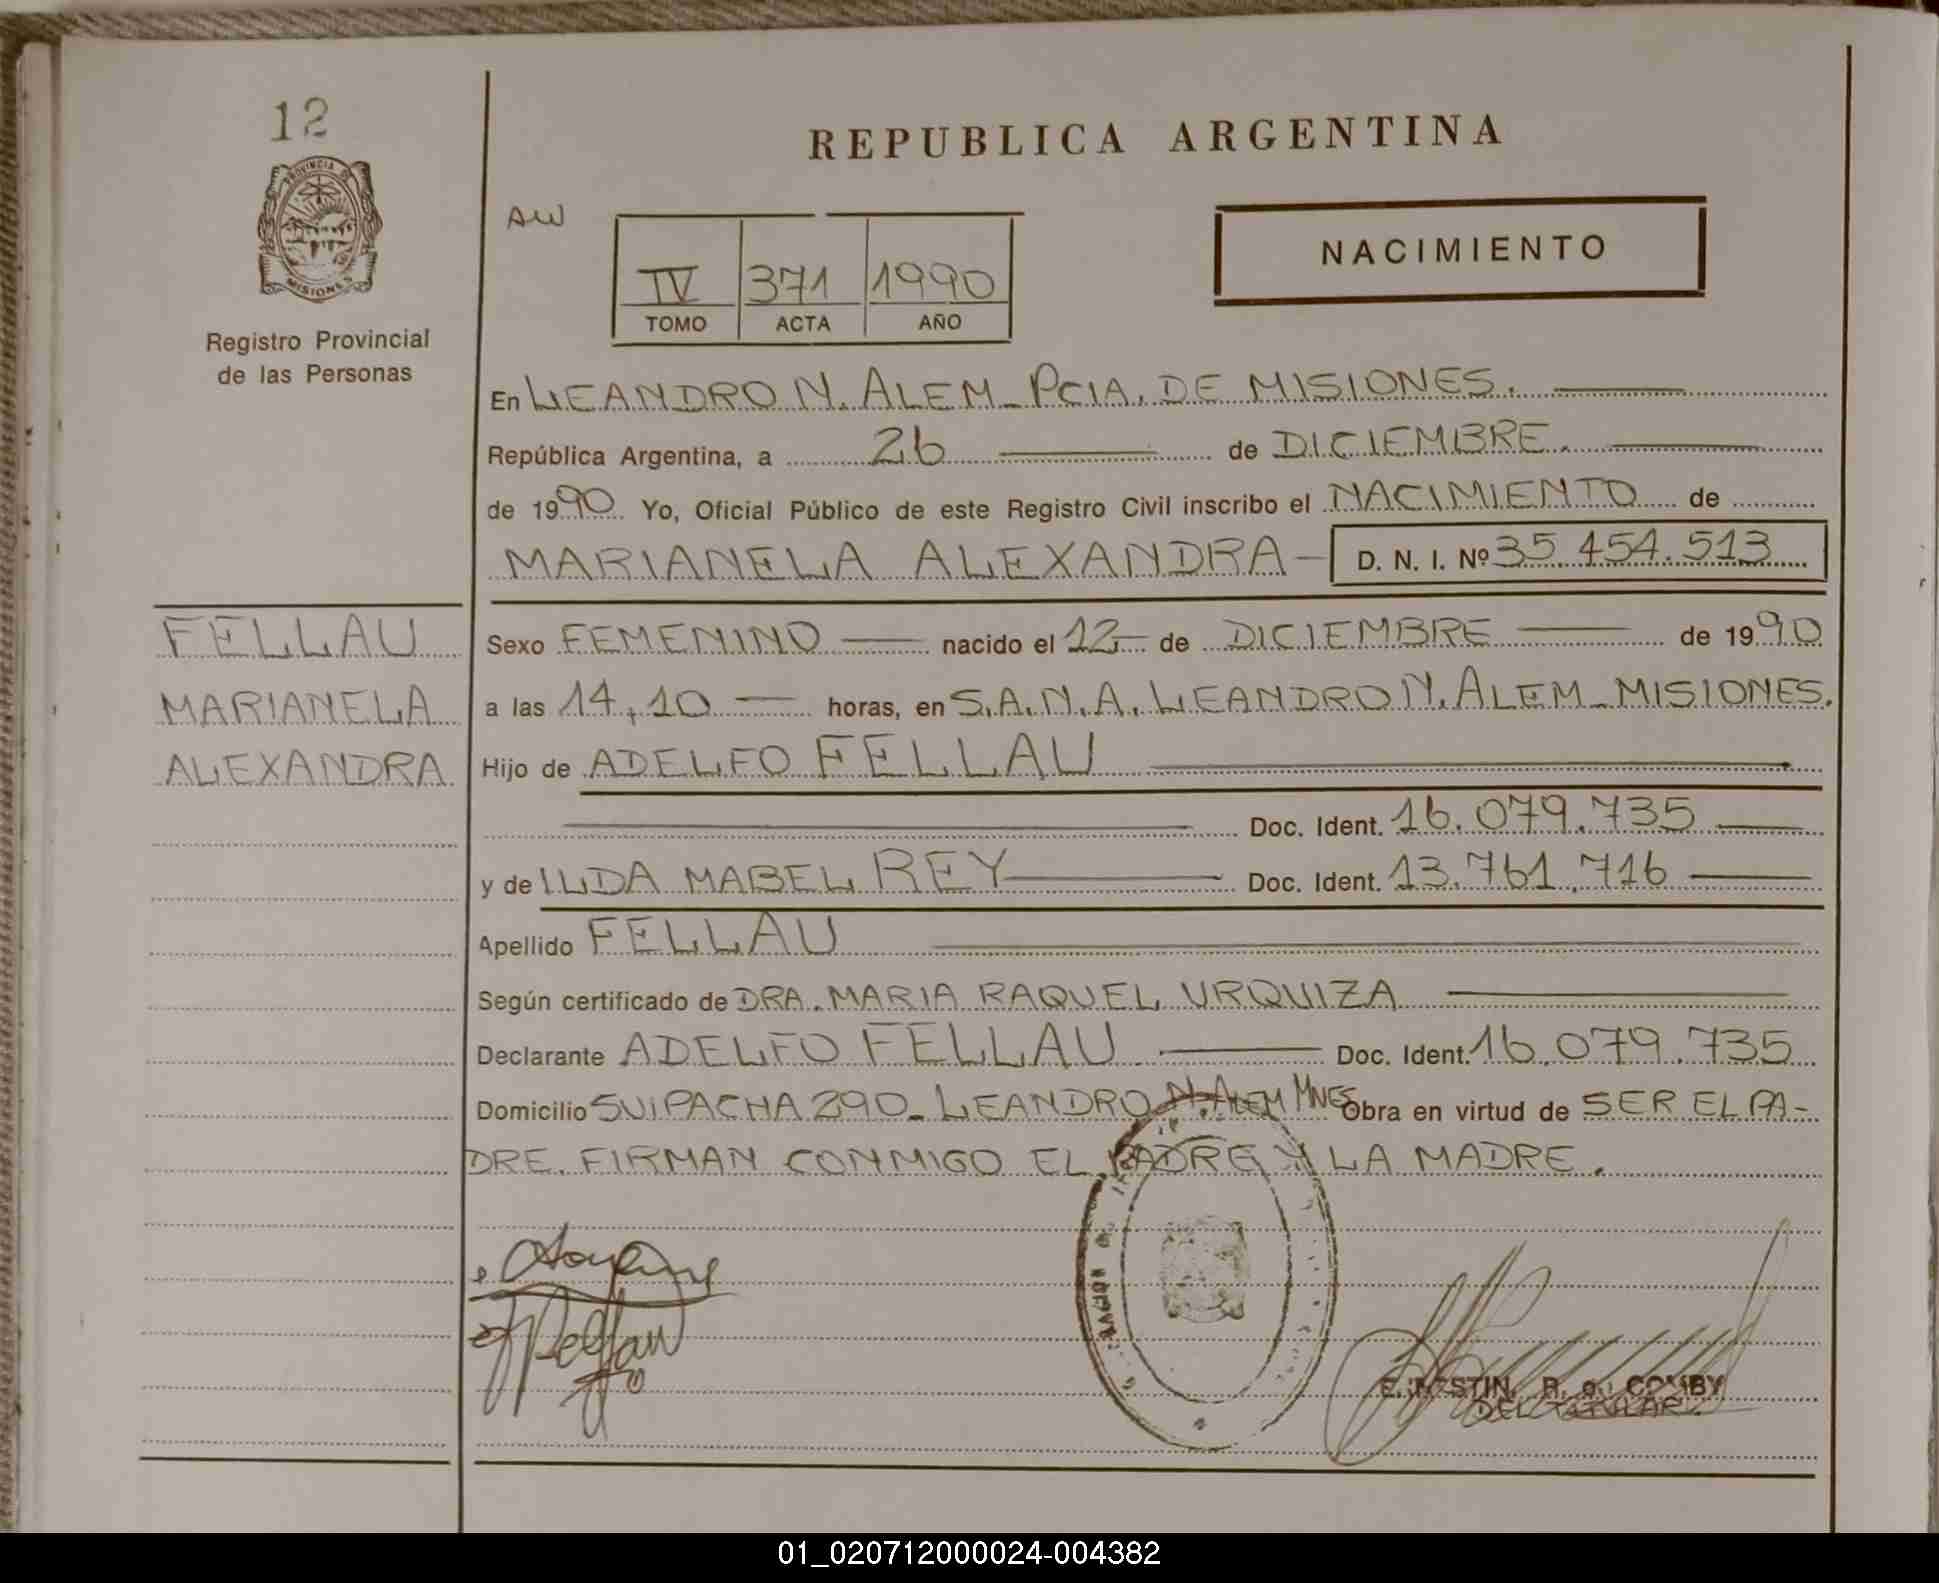 12
PROVINCIA DE
MISIONES
Registro Provincial
de las Personas
REPUBLICA ARGENTINA
AW
IV 371 1990
TOMO ACTA AÑO
NACIMIENTO
En LEANDRO N. ALEM - PCIA. DE MISIONES.
República Argentina, a 26 de DICIEMBRE.
de 1990 Yo, Oficial Público de este Registro Civil inscribo el NACIMIENTO de
MARIANELA ALEXANDRA - D. N. I. Nº 35.454.513
FELLAU
MARIANELA
ALEXANDRA
Sexo FEMENINO nacido el 12 de DICIEMBRE de 1990
a las 14,10 horas, en S.A.N.A. LEANDRO N. ALEM - MISIONES.
Hijo de ADELFO FELLAU
Doc. Ident. 16.079.735
y de ILDA MABEL REY Doc. Ident. 13.761.716
Apellido FELLAU
Según certificado de DRA. MARIA RAQUEL URQUIZA
Declarante ADELFO FELLAU Doc. Ident. 16.079.735
Domicilio SUIPACHA 290 - LEANDRO N. ALEM MNES Obra en virtud de SER EL PA-
DRE. FIRMAN CONMIGO EL PADRE Y LA MADRE.
01_020712000024-004382